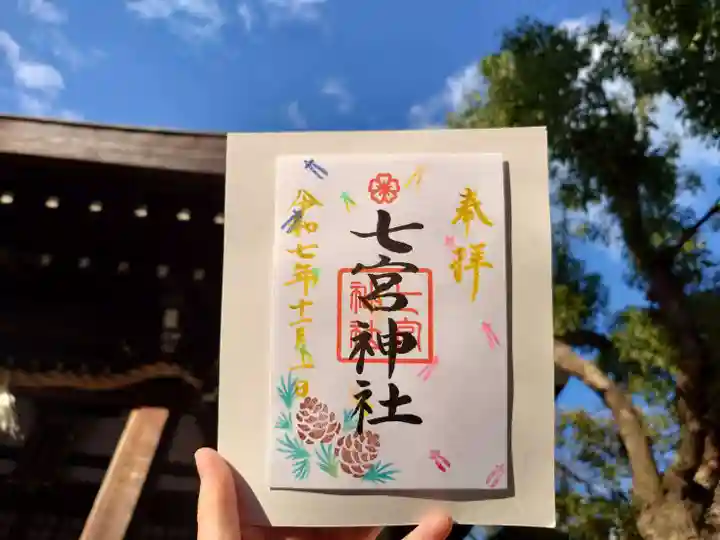 奉拝
七宮神社
七宮神社
令和七年十一月十一日